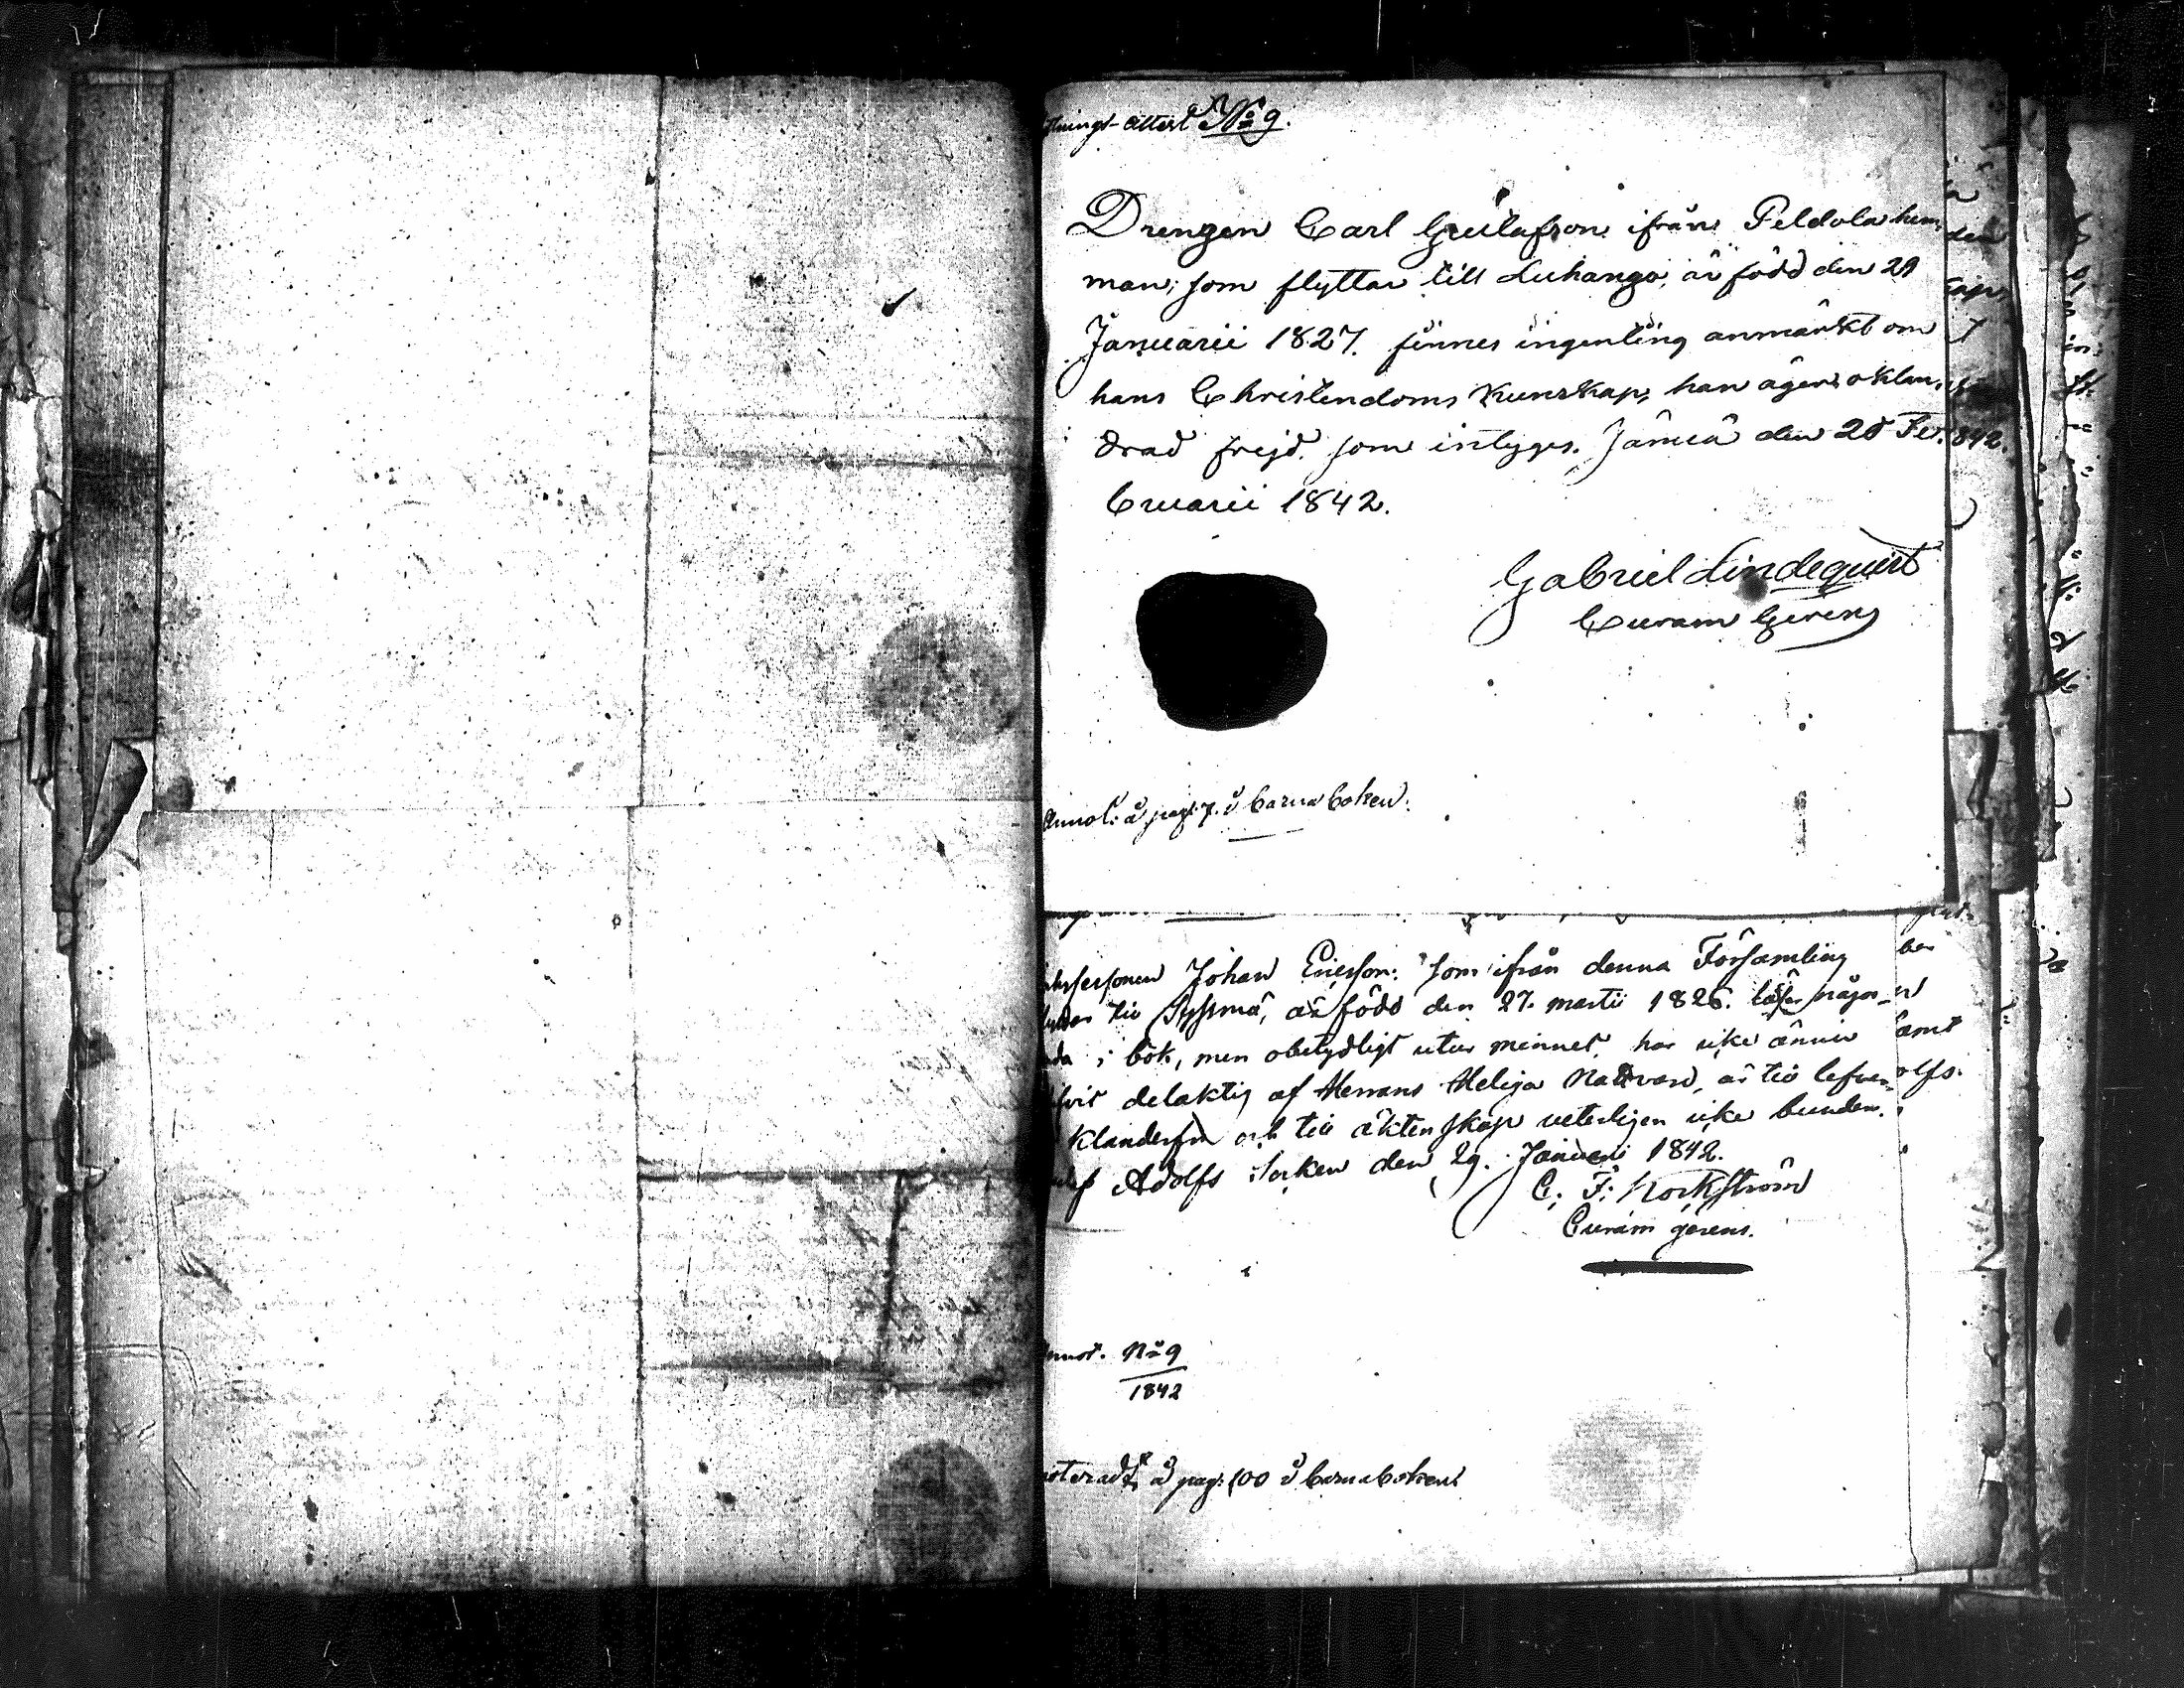 Attest No 9.
Drengen Carl Gustafson ifrån Peldola hem,
man, som flyttar till Luhango, är född den 29
Januarii 1827. finnes ingenting anmärkt om
hans Christendoms Kunskap, han äger oklan,
drad frejd. som intyges. Jämsä den 28 Fe,
bruarii 1842.
Gabriel Lindequist
Curam Gerens
Annot: å pag: 7. i barnaboken.
Johan Ericsson: som ifrån denna Församling
till Sysmä, är född den 27. martii 1826. läser någor-
i bok, men obetydligt utur minnet, har icke ännu
delaktig af Herrans Heliga Nattvard, är till lefver-
klanderfri och till äktenskap veterligen icke bunden.
Adolfs kyrka den 29. Januari 1842.
C. F. Norkström
Curam gerens.
Annot. No 9
1842
å pag: 100 i barnaboken